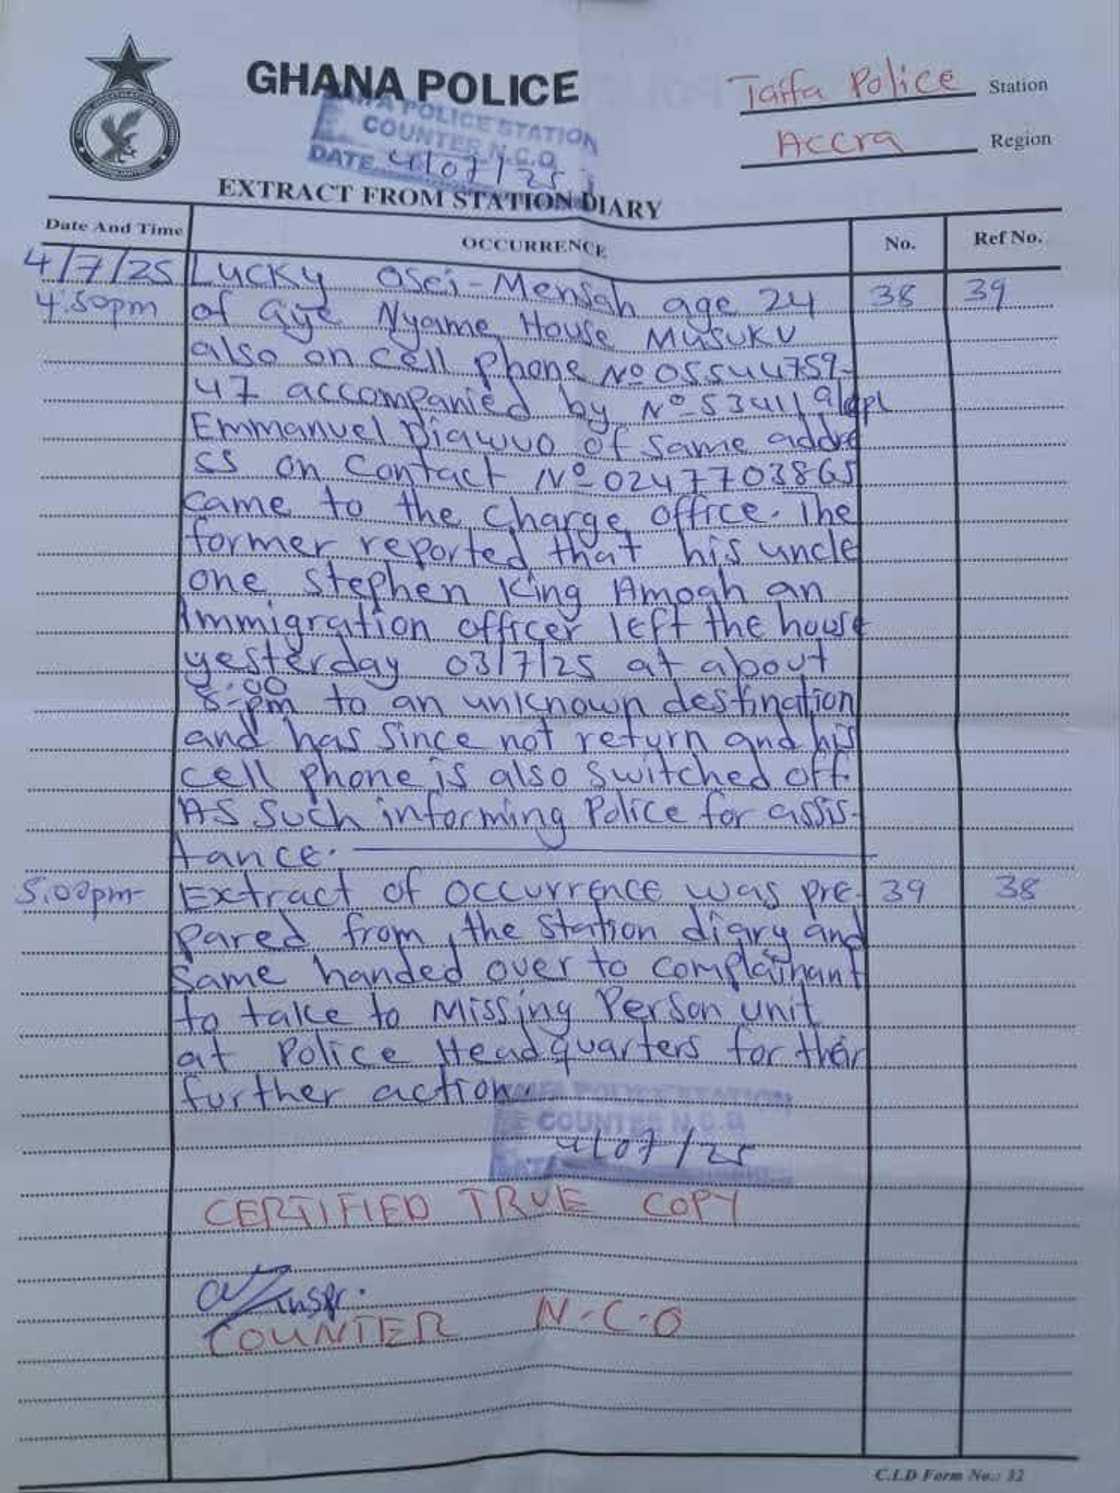 GHANA POLICE
Taifa Police Station
Accra Region
POLICE STATION
COUNTER N.C.O
DATE 4/07/25
EXTRACT FROM STATION DIARY
Date And Time OCCURRENCE No. Ref No.
4/7/25 Lucky Osei-Mensah age 24 38 39
4:50pm of Gye Nyame House Musuku
also on cell phone No 05544759-
47 accompanied by No 53411 g/cpl
Emmanuel Diawuo of same addre
ss on contact No 0247703865
came to the charge office. The
former reported that his uncle
one Stephen King Amoah an
Immigration officer left the house
yesterday 03/7/25 at about
8:00pm to an unknown destination
and has since not return and his
cell phone is also switched off.
As such informing Police for assis-
tance.
5:00pm- Extract of occurrence was pre- 39 38
pared from the station diary and
same handed over to complainant
to take to Missing Person unit
at Police Headquarters for their
further action.
POLICE STATION
COUNTER N.C.O
4/07/25
CERTIFIED TRUE COPY
Inspr.
COUNTER N.C.O
C.I.D Form No.: 32